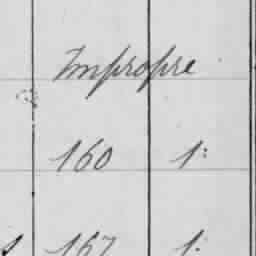 Impropre
160 1:
s 167 1: